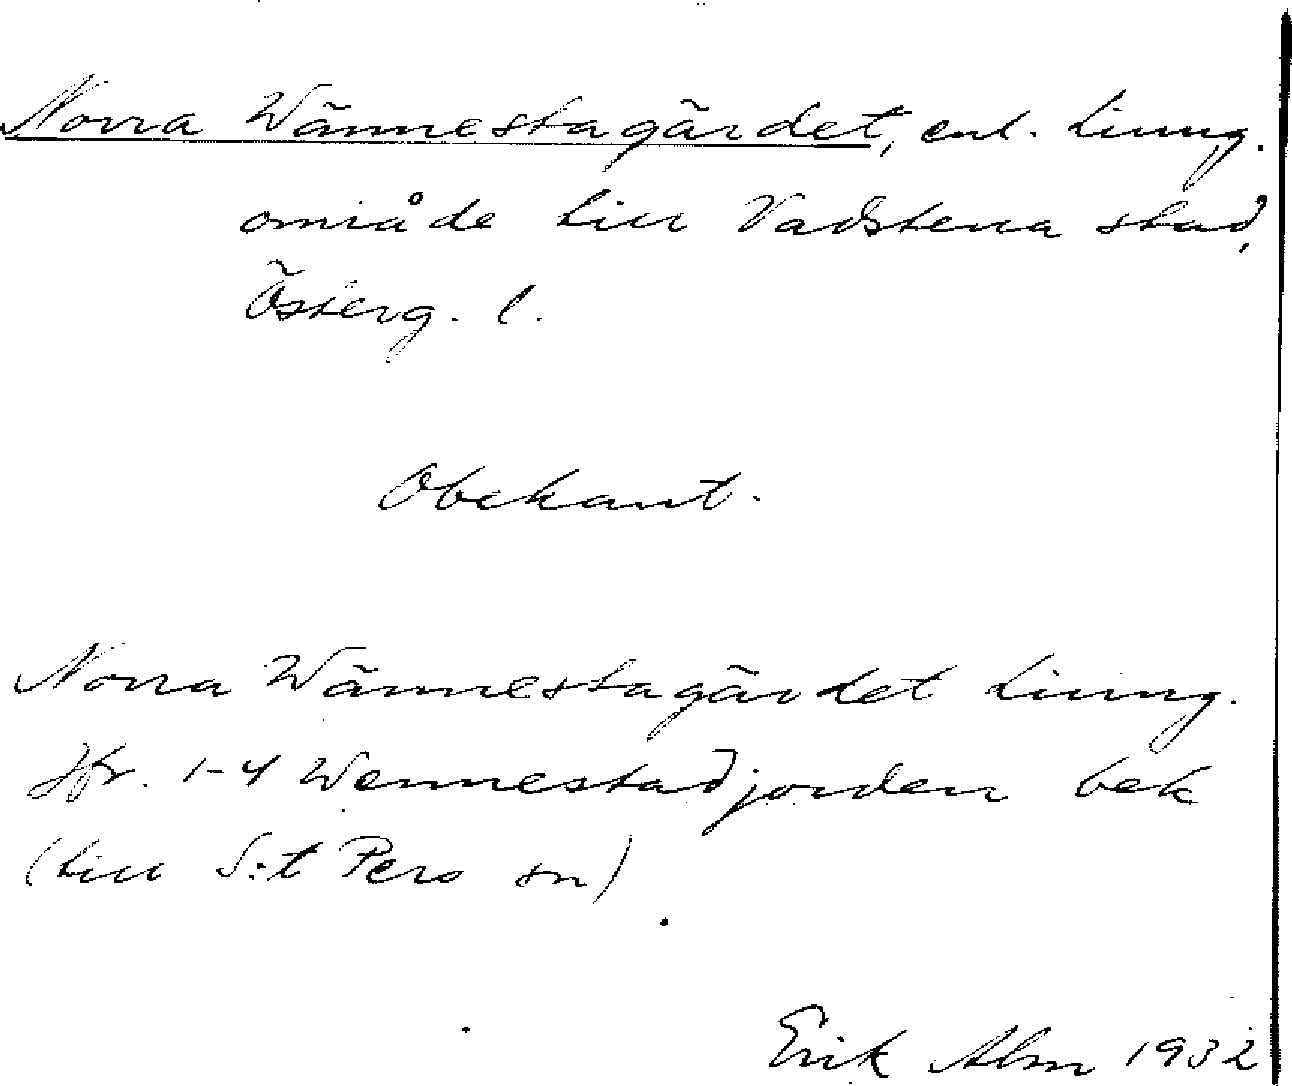 Norra Wännestagärdet, enl. Ljung.
område till Vadstena stad,
Österg. l.
Obekant.
Norra Wännestagärdet Ljung.
Jfr. 1-4 Wennestadjorden bek
(till S:t Pers sn)
Erik Alm 1932